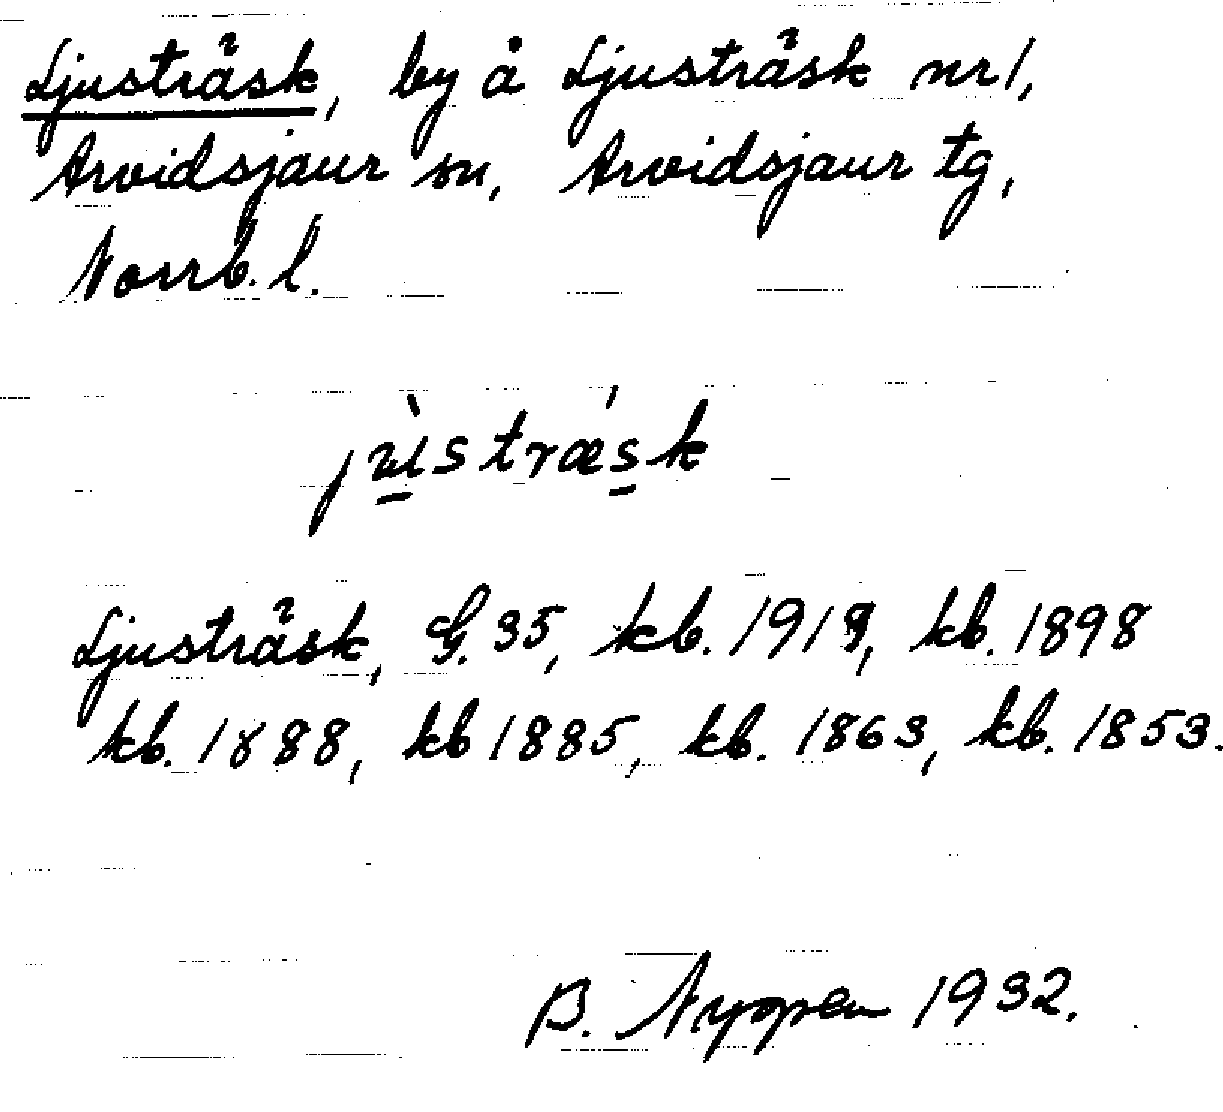 Ljusträsk, by å Ljusträsk nr 1,
Arvidsjaur sn, Arvidsjaur tg,
Norrb. l.
jùstrǽsk
Ljusträsk, G. 35, kb. 1919, kb. 1898
kb. 1888, kb 1885, kb. 1863, kb. 1853.
B. 1932.